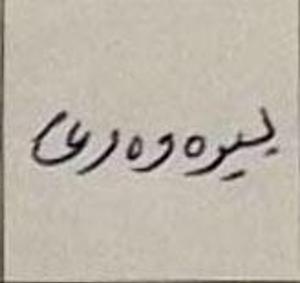 بیرەوەری